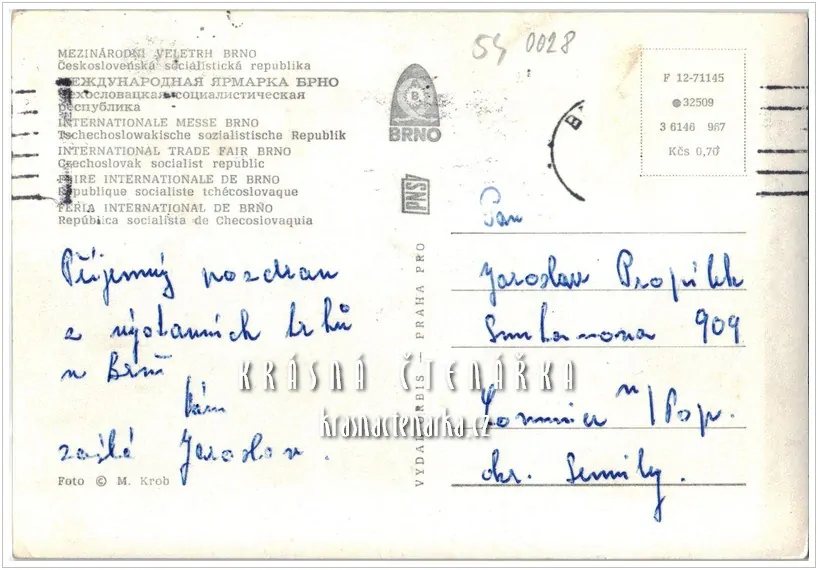 54 0028
MEZINÁRODNÍ VELETRH BRNO
Československá socialistická republika
МЕЖДУНАРОДНАЯ ЯРМАРКА БРНО
Чехословацкая социалистическая
республика
INTERNATIONALE MESSE BRNO
Tschechoslowakische sozialistische Republik
INTERNATIONAL TRADE FAIR BRNO
Czechoslovak socialist republic
FOIRE INTERNATIONALE DE BRNO
République socialiste tchécoslovaque
FERIA INTERNATIONAL DE BRNO
República socialista de Checoslovaquia
B
BRNO
PNS
F 12-71145
32509
3 6146 967
Kčs 0,70
B
Příjemný pozdrav
z výstavních trhů
v Brně
Vám
zasílá Jaroslav.
Foto © M. Krob
VYDAL ORBIS — PRAHA PRO
Pan
Jaroslav
Smetanova 909
Lomnice n/Pop.
okr. Semily.
KRÁSNÁ ČTENÁŘKA
krasnactenarka.cz